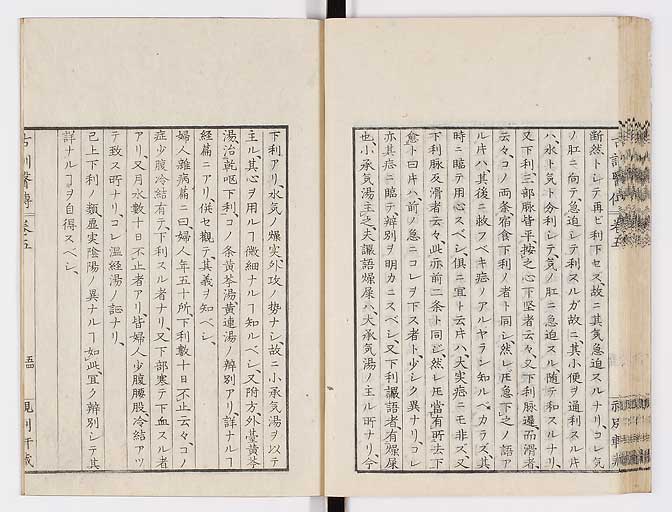 断然トシテ再ヒ利下セス、故ニ其気急迫スルナリ、コレ気
ノ肛ニ向テ急迫シテ利スルガ故ニ其小便ヲ通利スル片
ハ、水ト気ト分利シテ気ノ肛ニ急迫スル随テ和スルナリ、
又下利三部脉皆平、按之心下坚者云々、又下利脉遲而滑者
云々、コノ両条宿食下利ノ者ト同シ、然レ𪜈急下之ノ語ア
ル片ハ其後ニ救フベキ症ノアルヤラン知ルベカラズ其
時ニ臨テ用心スベシ、俱ニ宜ト云片ハ、大実症ニモ非ズ、又
下利脉反滑者云々、此亦前二条ト同シ、然レ𪜈當有所去下
愈ト曰片ハ、前ノ急ニコレヲ下ス者ト少シク異ナリ、コレ
亦其症ニ臨テ辨別ヲ明カニスベシ、又下利讝語者有燥屎
也、小承気湯主之、夫讝語燥屎ハ大承気湯ノ主ル所ナリ、今
下利アリ、水気ノ燥実外攻ノ勢ナシ、故ニ小承気湯ヲ以テ
主ル其心ヲ用ルヿ微細ナルヿ知ルベシ、又附方、外臺黄芩
湯治乾呕下利、コノ条黄芩湯黄連湯ノ辨別アリ、詳ナルヿ
経篇ニアリ、供セ觀テ其義ヲ知ベシ、
婦人雜病篇ニ曰婦人年五十所、下利數十日不止云々、コノ
症少腹冷結有テ、下利スル者ナリ、又下部寒テ下血スル者
アリ、又月水數十日不止者アリ、皆婦人少腹腰股冷結アツ
テ致ス所ナリ、コレ温経湯ノ証ナリ、
已上下利ノ類虚実陰陽ノ異ナルヿ如此、宜ク辨別シテ其
詳ナルヿヲ自得スベシ、